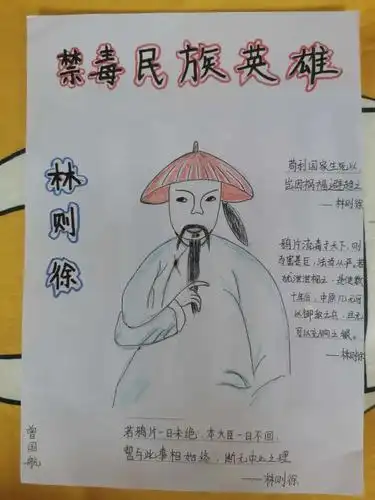 禁毒民族英雄
林则徐
苟利国家生死以
岂因祸福避趋之
——林则徐
鸦片流毒于天下,则
为害甚巨,法当从严。若
犹泄泄视之,是使数
十年后,中原几无可
以御敌之兵,且无
可以充饷之银。
——林则徐
若鸦片一日未绝,本大臣一日不回,
誓与此事相始终,断无中止之理
——林则徐
曾国航